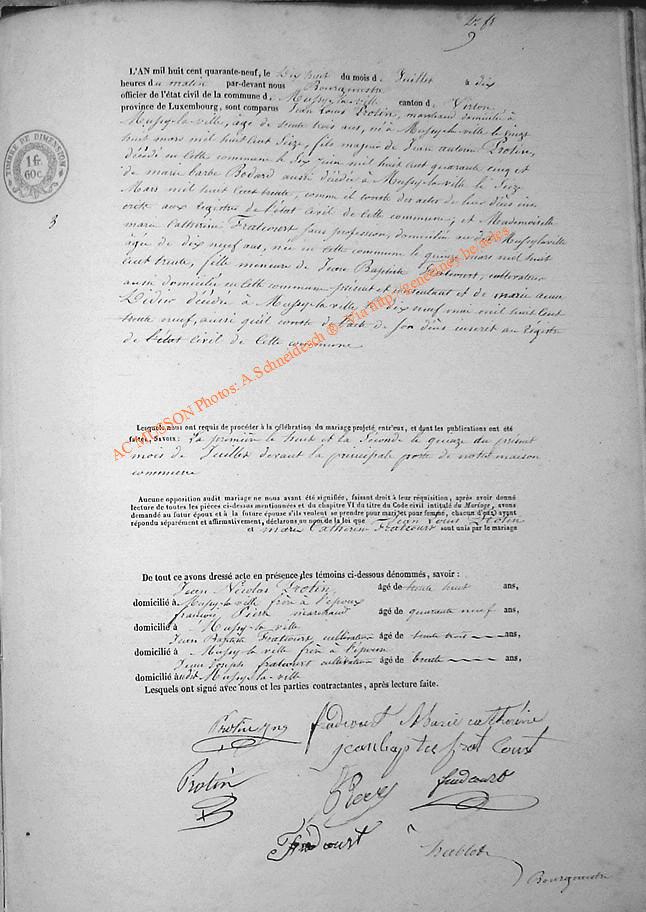 L'AN mil huit cent quarante-neuf, le Dix huit du mois d Juillet à dix
heures du matin par-devant nous Bourgmestre
officier de l'état civil de la commune d Mussy-la-ville canton d Virton
province de Luxembourg, sont comparus Jean Louis Protin, marchand domicilié à
Mussy-la-ville, âgé de trente trois ans, né à Mussy-la-ville le
huit mars mil huit cent seize, fils majeur de Jean Antoine Protin,
décédé en cette commune le six juin mil huit cent quarante cinq et
de marie barbe Bodard aussi décédée à Mussy-la-ville le seize
Mars mil huit cent trente, comme il conste des actes de leur décès ins
crits aux registres de l'état civil de cette commune; et Mademoiselle
marie Catherine Fratcourt sans profession, domiciliée au dit Mussylaville
âgée de dix neuf ans, née en cette commune le quinze mars mil huit
cent trente, fille mineure de Jean Baptiste Fratcourt, cultivateur
aussi domicilié en cette commune présent et consentant et de marie anne
décédée à Mussy-la-ville le dix neuf mai mil huit cent
trente neuf, aussi qu'il conste de l'acte de son décès inscrit au registre
de l'état civil de cette commune
TIMBRE DE DIMENSION
1 fr
60c
AC MUSSON Photos: A.Schneidesch ® Via http://geneanet.be/actes
Lesquels nous ont requis de procéder à la célébration du mariage projeté entr'eux, et dont les publications ont été
faites, Savoir: La première le huit et la seconde le quinze du présent
mois de Juillet devant la principale porte de notre maison
commune
Aucune opposition audit mariage ne nous ayant été signifiée, faisant droit à leur réquisition, après avoir donné
lecture de toutes les pièces ci-dessus mentionnées et du chapitre VI du titre du Code civil intitulé du Mariage, avons
demandé au futur époux et à la future épouse s'ils veulent se prendre pour mari et pour femme, chacun d'eux ayant
répondu séparément et affirmativement, déclarons au nom de la loi que Jean Louis Protin
& marie Catherine Fratcourt sont unis par le mariage
De tout ce avons dressé acte en présence des témoins ci-dessous dénommés, savoir :
Jean Nicolas Protin âgé de trente huit ans,
domicilié à Mussy-la-ville frère à l'époux
françois marchand âgé de quarante neuf ans,
domicilié à Mussy-la ville
Jean Baptiste Fratcourt, cultivateur âgé de trente trois ans,
domicilié à Mussy-la ville frère à l'épouse
Jean Joseph fratcourt cultivateur âgé de trente ans,
domicilié audit Mussy-la ville
Lesquels ont signé avec nous et les parties contractantes, après lecture faite.
fradcourt Marie catherine
jean baptiste frat court
Protin
fradcourt
Fradcourt
Bourgmestre